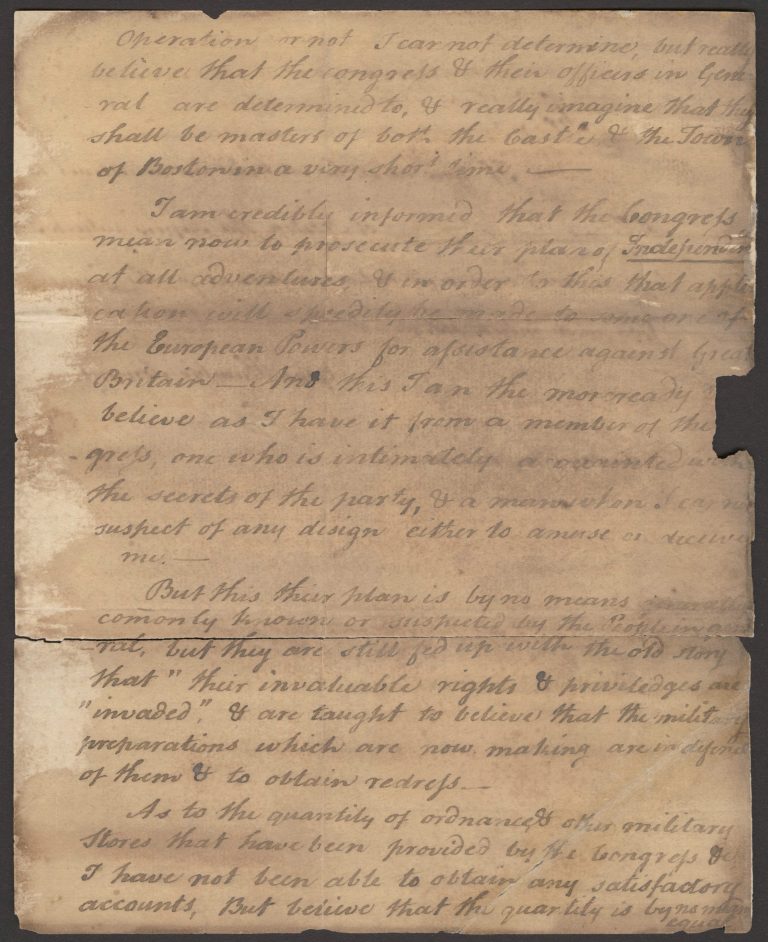 Operation or not I cannot determine, but really
believe that the congress & their officers in Gene
-ral are determined to, & really imagine that they
shall be masters of both the Castle & the Town
of Boston in a very short time. —
I am credibly informed that the Congress
mean now to prosecute their plan of Independen
at all adventures, & in order to this that appli
cation will speedily be made to some one of
the European Powers for assistance against Great
Britain — And this I am the more ready
believe as I have it from a member of the
-gress, one who is intimately acquainted with
the secrets of the party, & a man whom I cannot
suspect of any disign either to amuse or deceive
me. —
But this their plan is by no means
comonly known or suspected by the People in gene
-ral, but they are still fed up with the old story
that "their invaluable rights & priviledges are
"invaded", & are taught to believe that the military
preparations which are now making are in defence
of them & to obtain redress —
As to the quantity of ordnance & other military
Stores that have been provided by the Congress
I have not been able to obtain any satisfactory
accounts, But believe that the quantity is by no means
equal